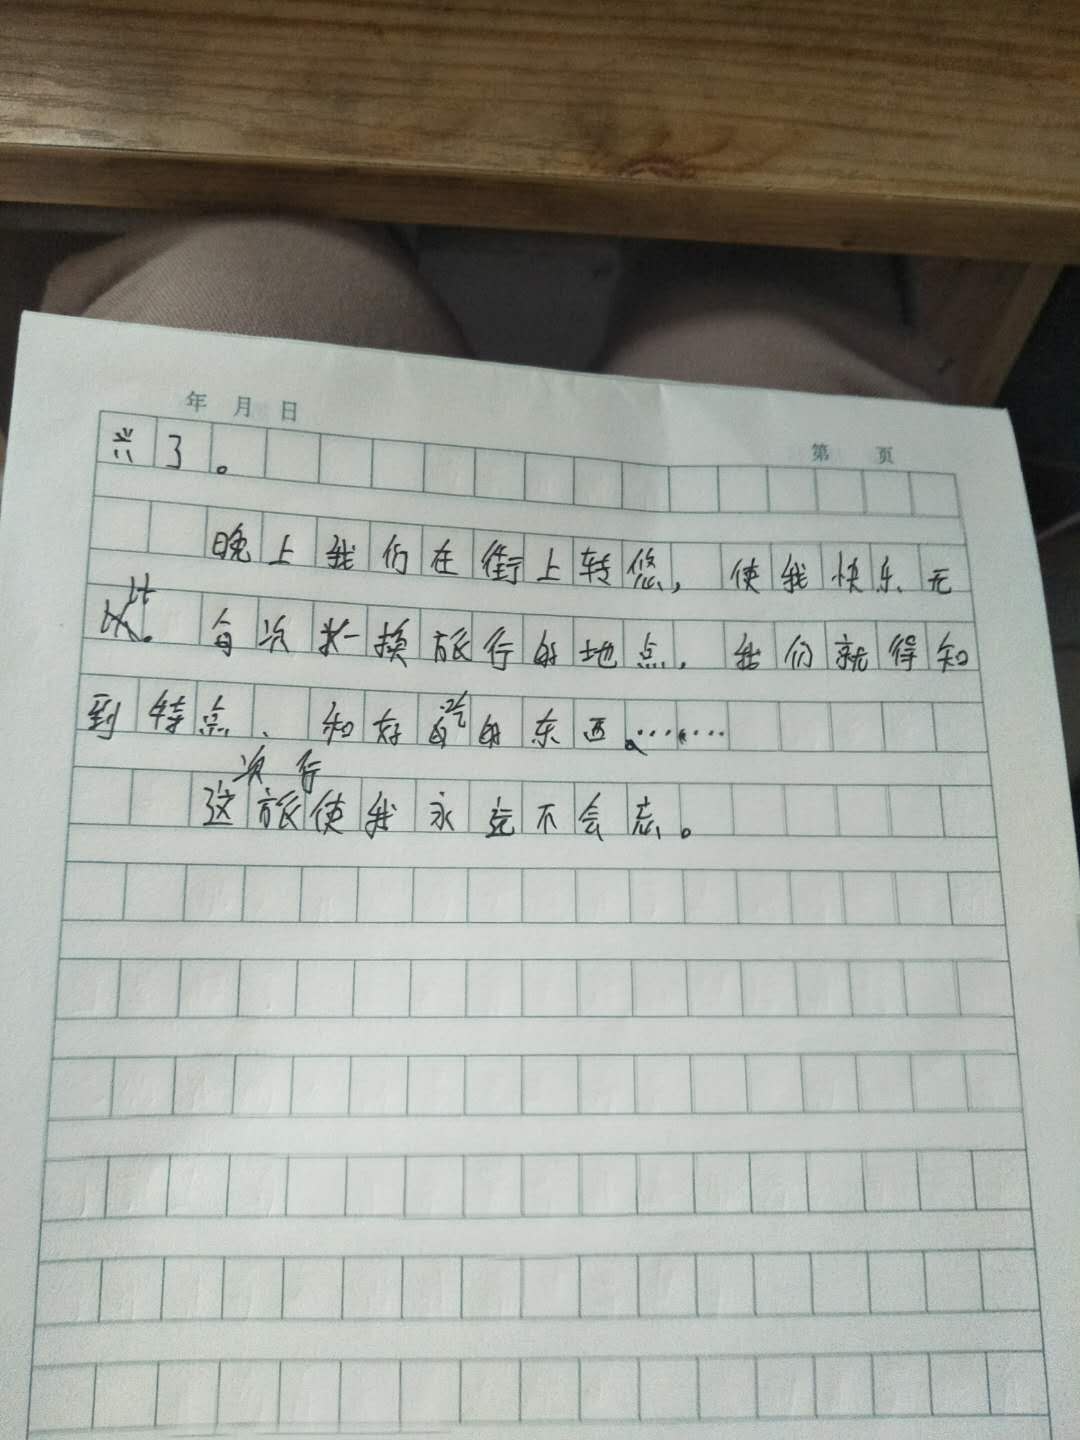 年 月 日
第 页
兴了。
晚上我们在街上转悠，使我快乐无
比。每次一换旅行的地点，我们就得知
到特点、和好吃的东西……
这次旅行使我永远不会忘。